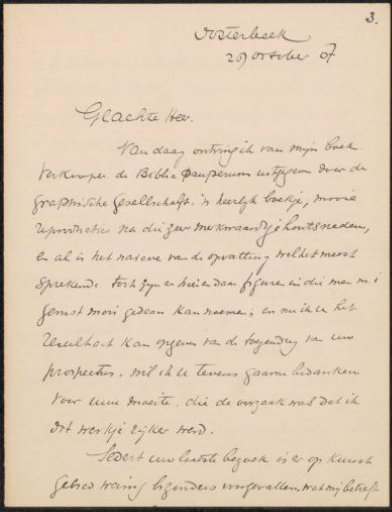 3.
Oosterbeek
29 October 07
Geachte Heer.
Van daag ontving ik van mijn boek
verkooper de Biblia Pauperum uitgegeven door de
graphische Gesellschaft. 'n heerlijk boekje, mooie
reproducties na dit zeer merkwaardige houtsneden,
en al is het naieve van de opvatting wel het meest
sprekende toch zijn er hier en daar figuren in die men
gerust mooi gedaan kan noemen; en nu ik te het
resultaat kan opgeven van de toezending van uw
prospectus, wil ik U tevens gaarne bedanken
voor uwe moeite, die de oorzaak was dat ik
dit werkje rijker werd.
Sedert uw laatste bezoek is er op kunst
gebied weinig bizonders voorgevallen, wat mij betreft